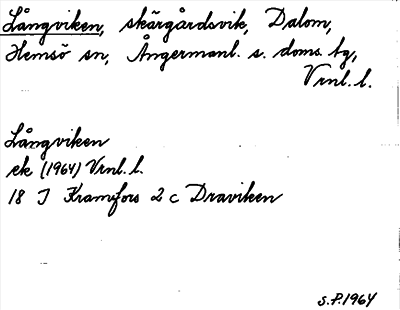 Långviken, skärgårdsvik, Dalom,
Hemsö sn, Ångermanl. s. doms. tg,
Vrnl. l.
Långviken
ek (1964) Vrnl. l.
18 J Kramfors 2 c Draviken
S.P. 1964